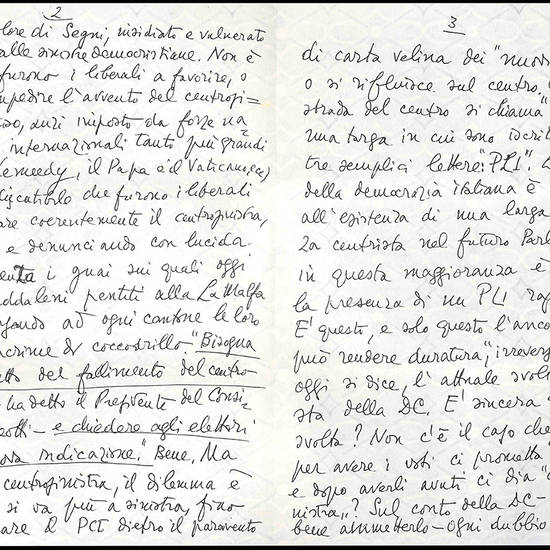 2
lore di Segni, insidiato e vulnerato
alle sinistre democristiane. Non è
furono i liberali a favorire, o
mpedire l'avvento del centrosi=
so, anzi imposto da forze na
internazionali tanto più grandi
Kennedy, il Papa e il Vaticano,
discutibile che furono i liberali
are coerentemente il centrosinistra,
e denunciando con lucida
enza i guai sui quali oggi
ddaleni pentiti alla La Malfa
ad ogni cantone le loro
acrime di coccodrillo. "Bisogna
atto del fallimento del centro
ha detto il Presidente del Consi
eotti - e chiedere agli elettori
ova indicazione". Bene. Ma
centrosinistra, il dilemma è
si va più a sinistra, fino
are il PCI dietro il paravento
3
di carta velina dei "nuovi
o si rifluisce sul centro.
strada del centro si chiama
una targa in cui sono iscritte
tre semplici lettere: "PLI".
della democrazia italiana è
all'esistenza di una larga
za centrista nel futuro Parl
in questa maggioranza è
la presenza di un PLI
E' questo, e solo questo l'anco
può rendere duratura, "irrevers
oggi si dice, l'attuale svolt
sta della DC. E' sincera
svolta? Non c'è il caso che
per avere i voti ci prometta
e dopo averli avuti ci dia
nistra"? Sul conto della DC-
bene ammetterlo - ogni dubbio